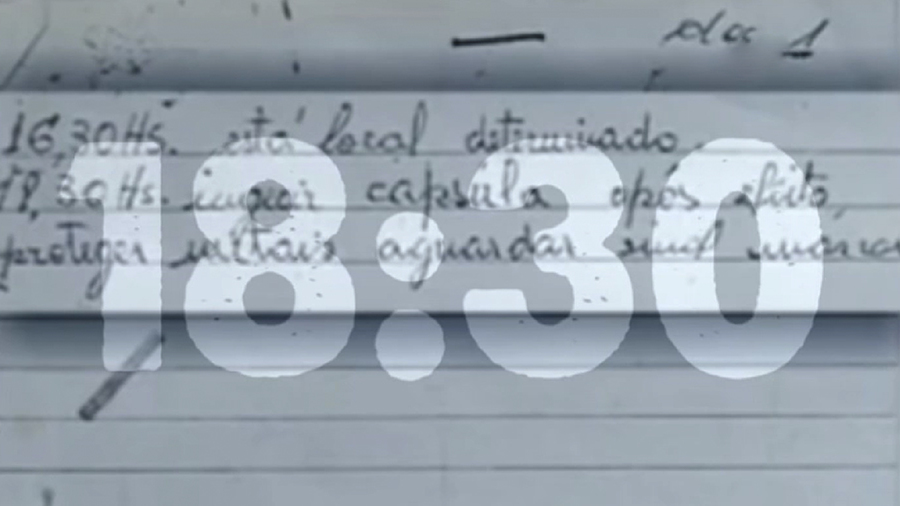 16,30Hs. está local determinado.
18,30Hs. ingerir capsula após efeito,
proteger metais aguardar sinal
18:30